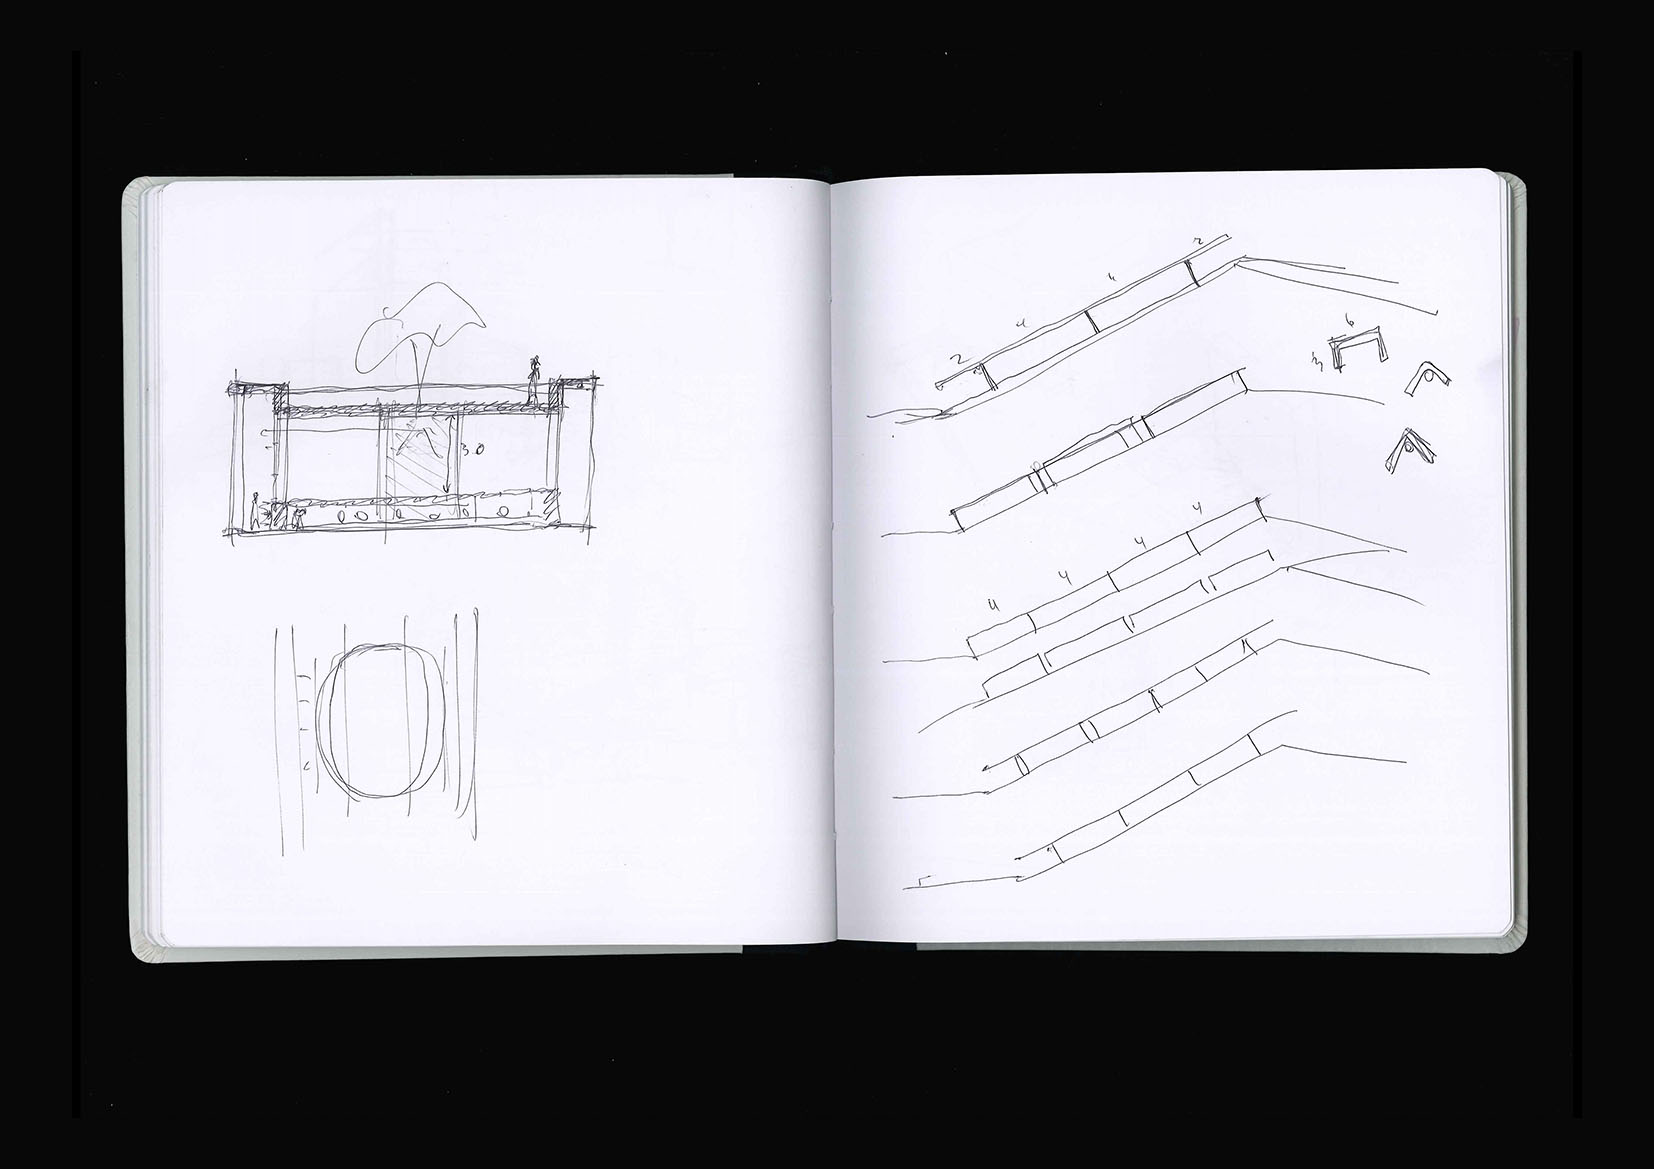 3.0
2
4
4
2
6
3
4
4
4
4